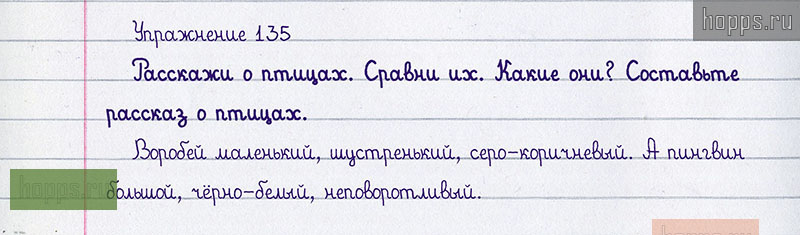 hopps.ru
Упражнение 135
Расскажи о птицах. Сравни их. Какие они? Составьте
рассказ о птицах.
Воробей маленький, шустренький, серо-коричневый. А пингвин
hopps.ru
большой, чёрно-белый, неповоротливый.